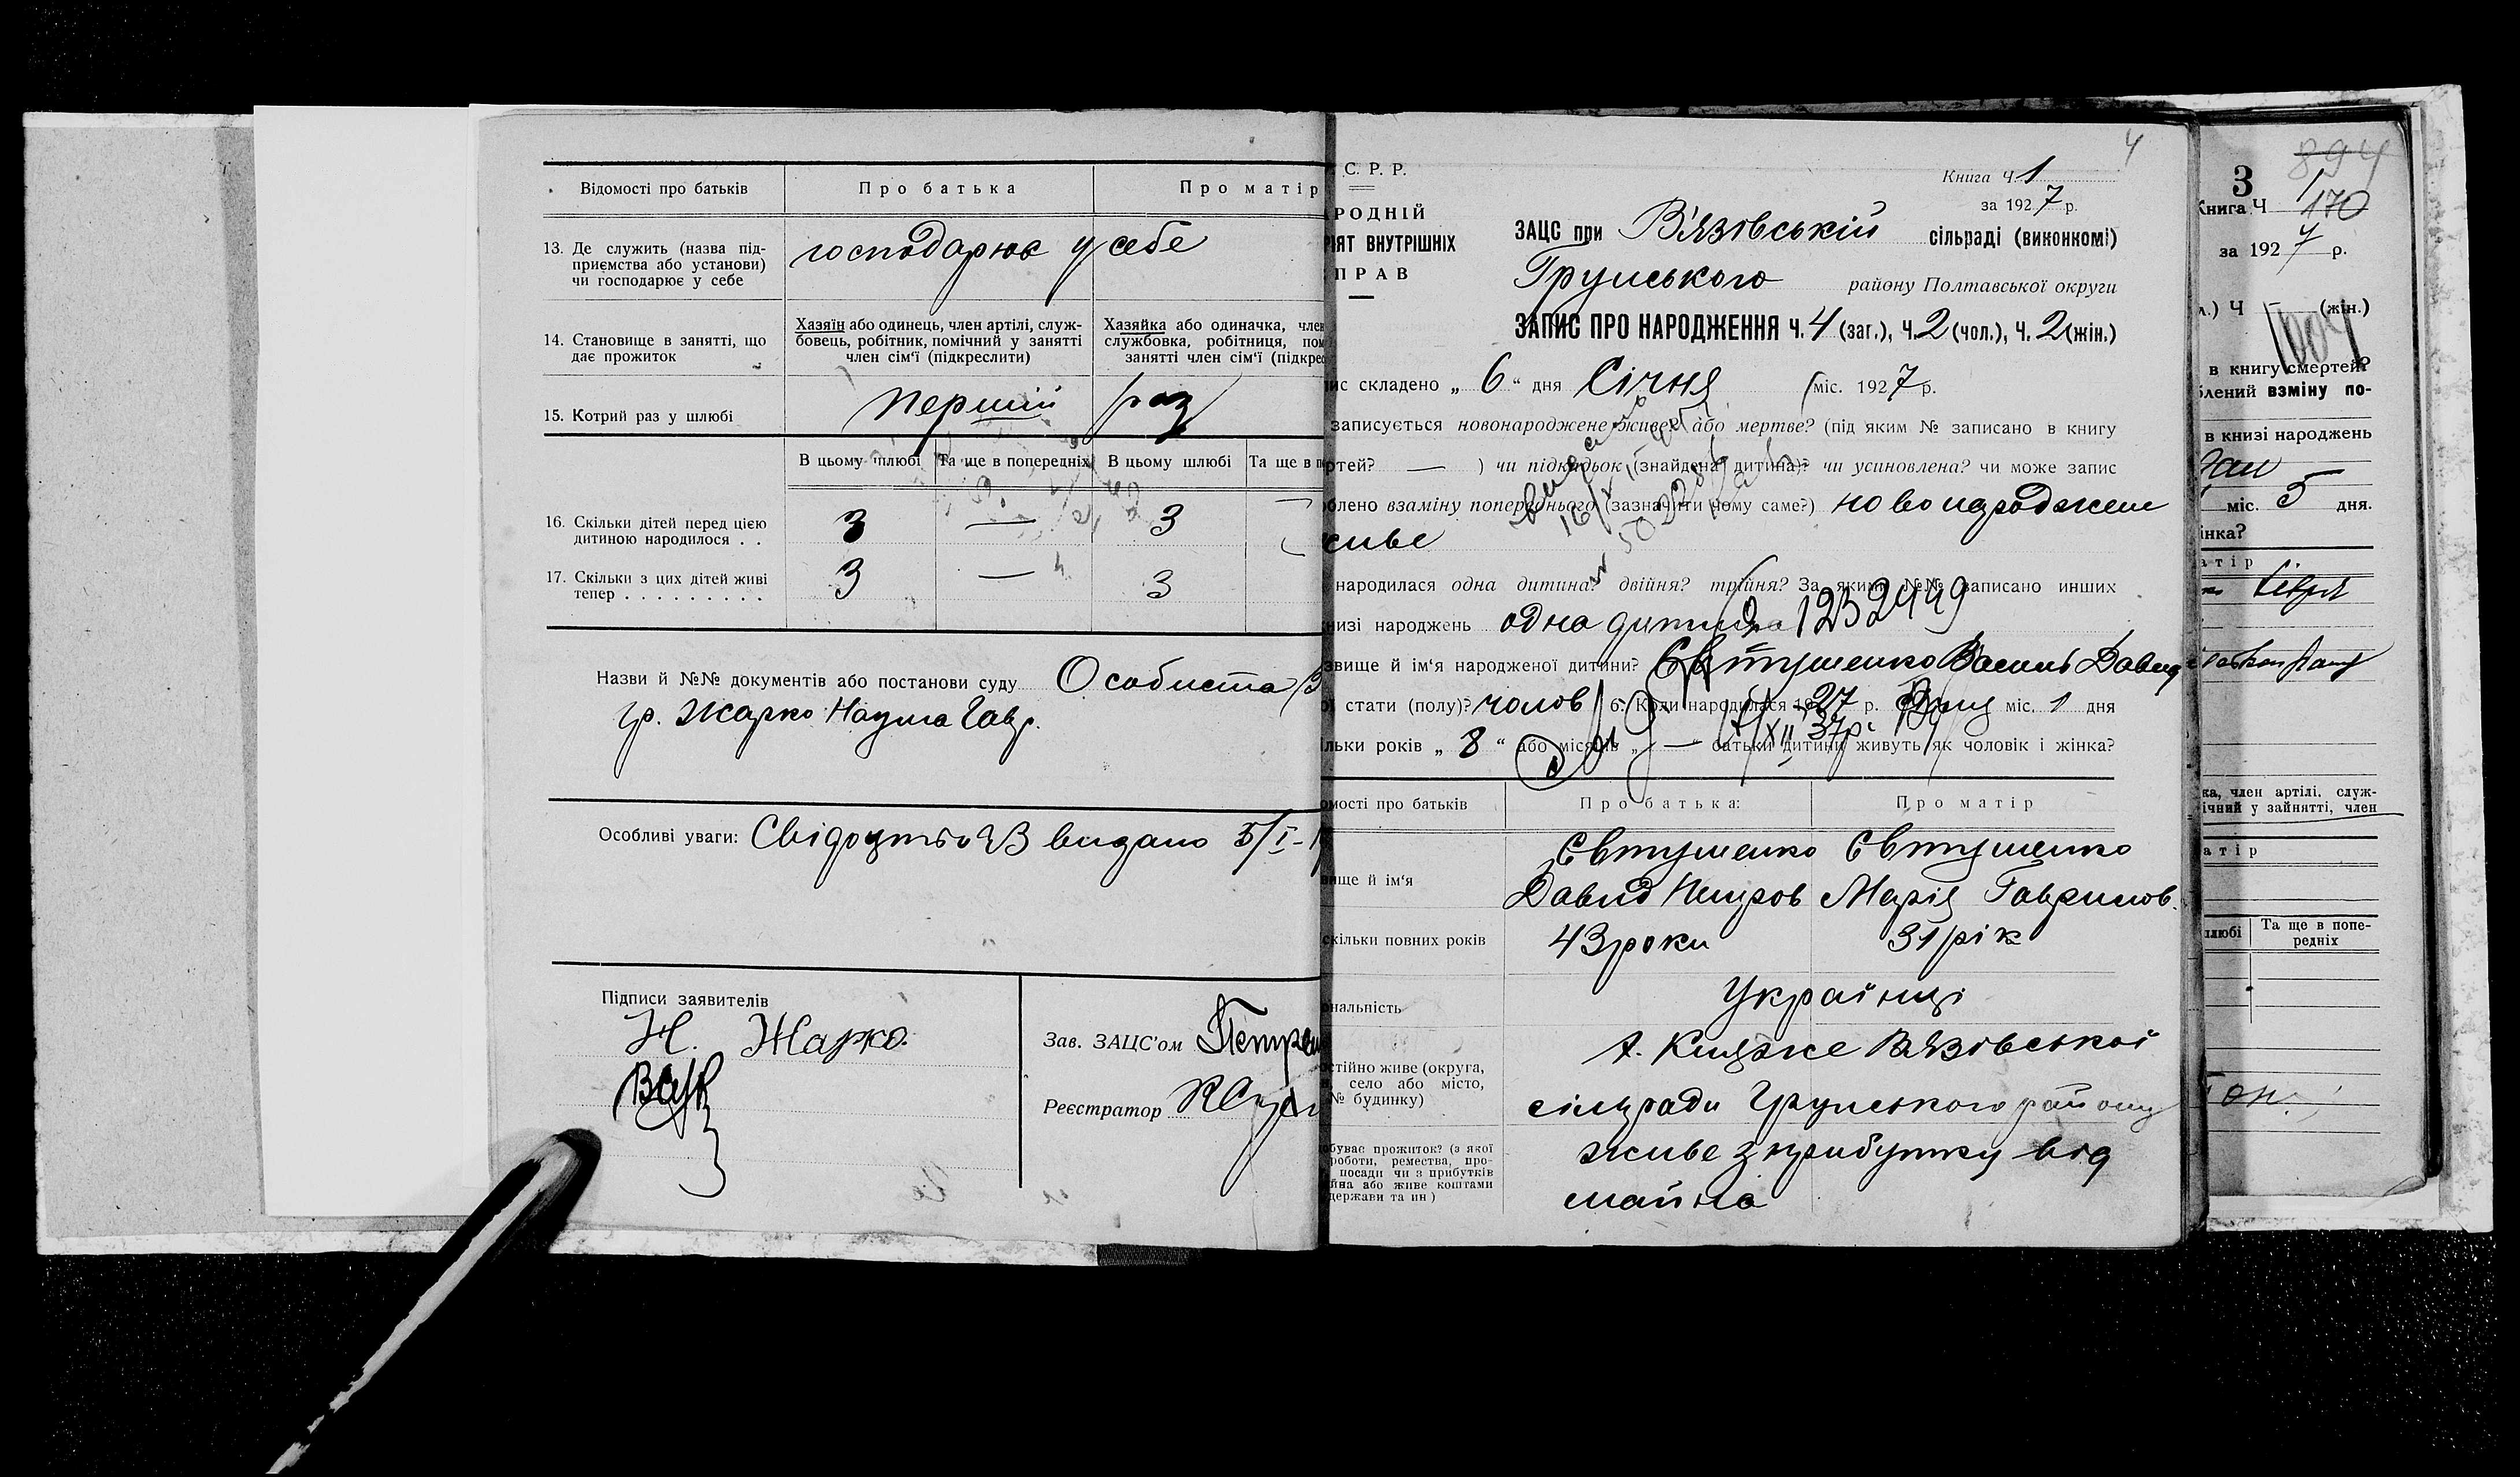 Відомості про батьків
Про батька
Про матір
13. Де служить (назва під-
приємства або установи)
чи господарює у себе
господарює у себе
14. Становище в занятті, що
дає прожиток
Хазяїн або одинець, член артілі, служ-
бовець, робітник, помічний у занятті
член сім'ї (підкреслити)
Хазяйка або одиначка, член
службовка, робітниця, пом
занятті член сім'ї (підкрес
15. Котрий раз у шлюбі
перший раз
В цьому шлюбі
Та ще в попередніх
В цьому шлюбі
Та ще в п
16. Скільки дітей перед цією
дитиною народилося . .
3 — 3
17. Скільки з цих дітей живі
тепер . . . . . . . . .
3 — 3
Назви й №№ документів або постанови суду Особиста
гр. Жарко Наума Гавр.
Особливі уваги: Свідоцтво ЧЗ видано 5/I-
Підписи заявителів
Н. Жарко.
Зав. ЗАЦС'ом Петрен
Реєстратор
4
С. Р. Р.
РОДНІЙ
РІЯТ ВНУТРІШНІХ
ПРАВ
Книга Ч. 1
за 1927 р.
ЗАЦС при В'язівській сільраді (виконкомі)
Грунського району Полтавської округи
ЗАПИС ПРО НАРОДЖЕННЯ ч. 4 (заг.), ч. 2 (чол.), ч. 2 (жін.)
ис складено „ 6 “ дня Січня міс. 1927 р.
записується новонароджене живе? або мертве? (під яким № записано в книгу
ртей? — ) чи підкидьок (знайдена дитина)? чи усиновлена? чи може запис
блено взаміну попереднього (зазначити чому саме?) новонароджене
живе
народилася одна дитина? двійня? трійня? За якими №№ записано инших
низі народжень одна дитина 1232449
звище й ім'я народженої дитини? Євтушенко Василь Давид
стати (полу)? чолов 6. Коли народилася 1927 р. Січня міс. 1 дня
льки років „ 8 “ або місяців „ — “ батьки дитини живуть як чоловік і жінка?
омості про батьків
Про батька:
Про матір
вище й ім'я
Євтушенко
Давид Петров
Євтушенко
Марія Гаврилов.
скільки повних років
43 роки
31 рік
ональність
Українці
стійно живе (округа,
село або місто,
№ будинку)
х. Княже В'язівської
сільради Грунського району
буває прожиток? (з якої
роботи, ремества, про-
посади чи з прибутків
йна або живе коштами
держави та ин)
живе з прибутку від
майна
894
3
Книга Ч 1
170
за 1927 р.
л.) Ч (жін.)
1004
в книгу смертей?
блений взміну по-
в книзі народжень
міс. 5 дня.
інка?
атір
ка, член артілі, служ-
ічний у зайнятті, член
атір
шлюбі
Та ще в попе-
редніх